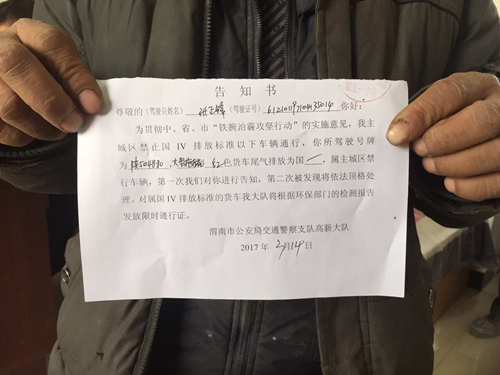 告知书
尊敬的（驾驶员姓名）（驾驶证号）你好：
为贯彻中、省、市“铁腕治霾攻坚行动”的实施意见，我主
城区禁止国 IV 排放标准以下车辆通行，你所驾驶号牌
为 红色货车尾气排放为国 一，属主城区禁
行车辆，第一次我们对你进行告知，第二次被发现将依法顶格处
理。对属国 IV 排放标准的货车我大队将根据环保部门的检测报告
发放限时通行证。
渭南市公安局交通警察支队高新大队
2017 年 2月14日